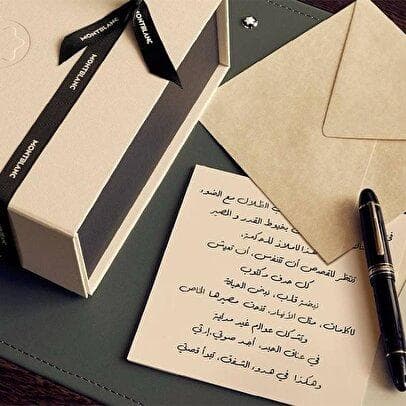 MONTBLANC
MONTBLANC
MONTBLANC
MONTBLANC
الظلال مع الضوء
بخيوط القدر والصبر
هذا الملاذ للحكمة،
تنتظر القصص أن تتنفس، أن تعيش
كل حرف مكتوب
نبضة قلب، نبض الحياة
للكلمات، مثل الأنهار، تنحت مصيرها الخاص
وتشكل عوالم غير مرئية
في عناق الحبر، أجد صوتي، إرثي
وهكذا في هدوء الشفق، تبدأ قصتي